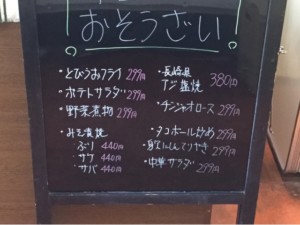 おそうざい
・とびうおフライ 299円
・ポテトサラダ 299円
・野菜煮物 299円
・みそ漬焼
ぶり 440円
サケ 440円
サバ 440円
・長崎県
アジ塩焼 380円
・チンジャオロース 299円
・タコボール炒め 299円
299円
・中華サラダ 299円